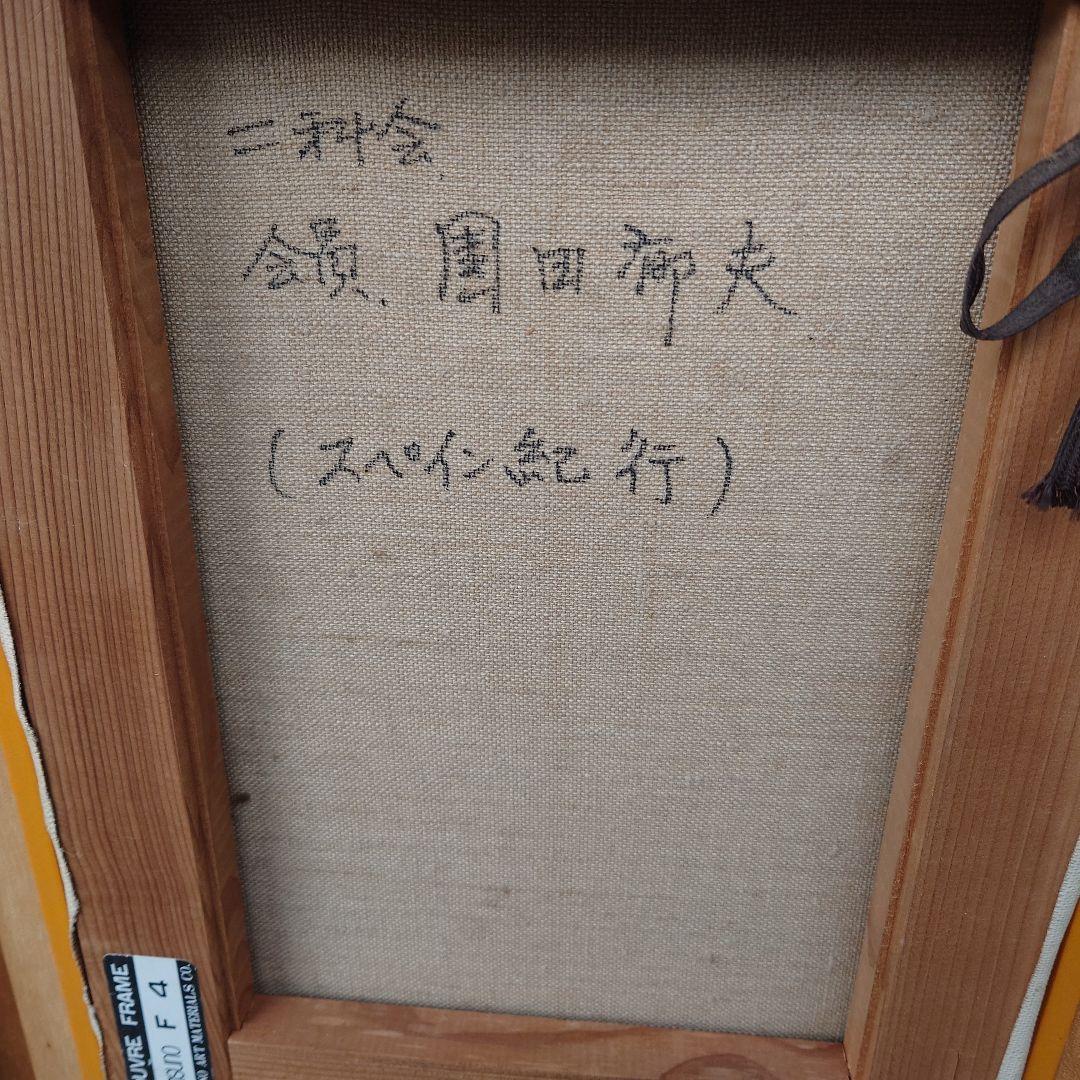 二科会
会員、園田郁夫
(スペイン紀行)
UVRE FRAME
suno F 4
NO ART MATERIALS CO.